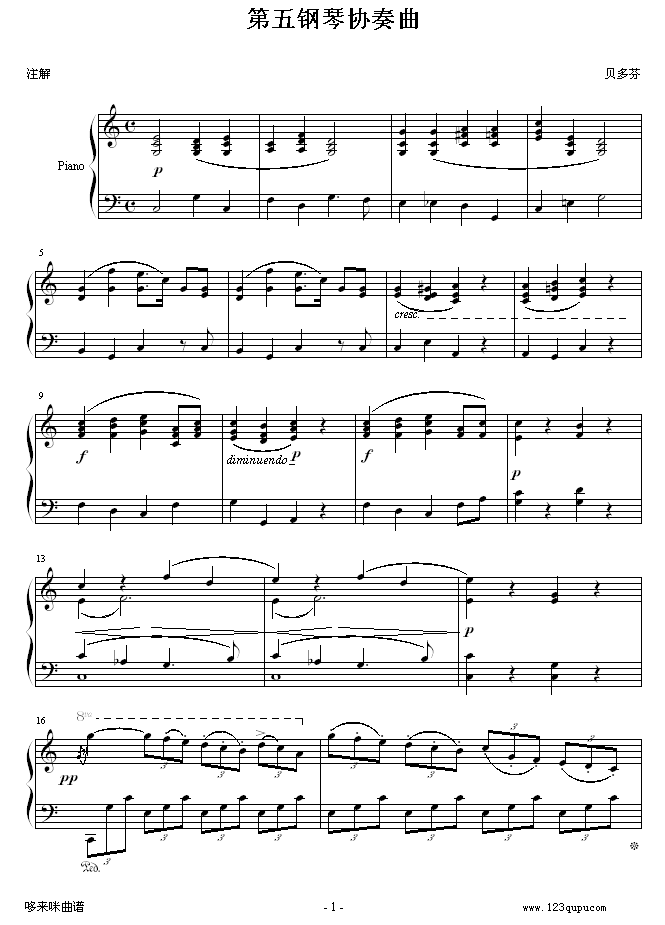 第五钢琴协奏曲
注解
贝多芬
Piano
p
5
cresc.
9
f
diminuendo
p
f
p
13
p
16
8va
pp
3 3 3 3 3 3 3
3 3 3 3 3 3
Ped.
哆来咪曲谱
- 1 -
www.123qupu.com